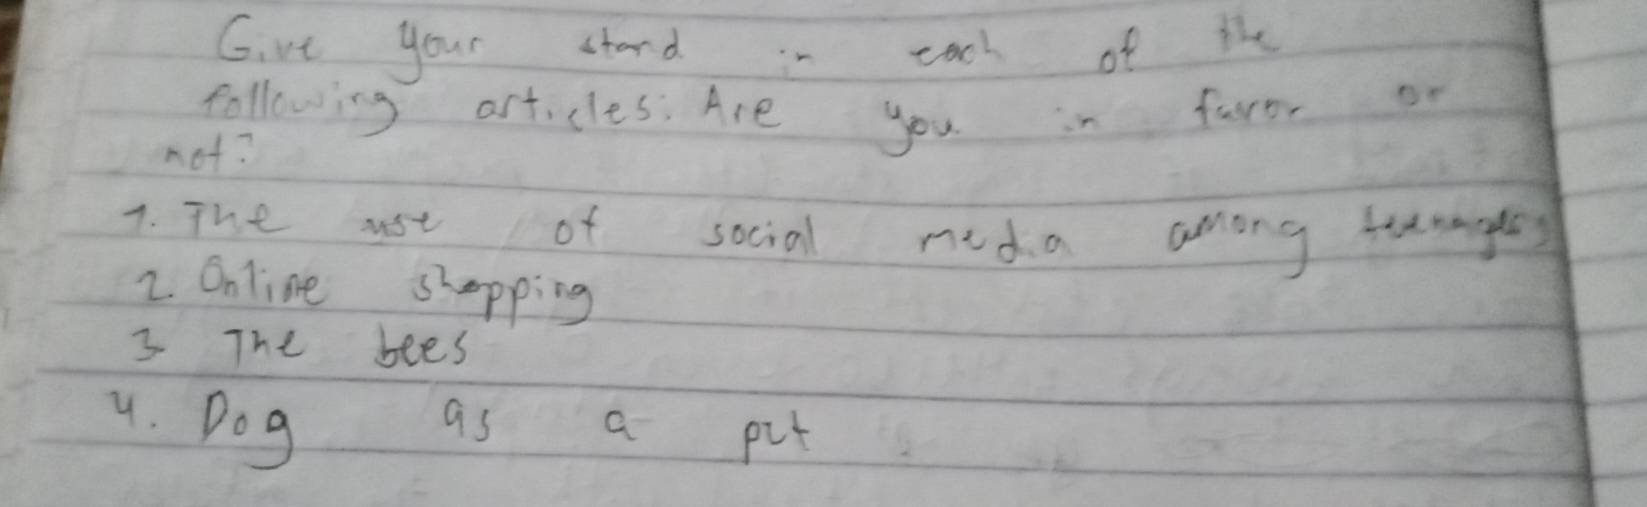 Give your stand in each of the
following articles. Are you in favor or
not?
1. The use of social media among teenagers
2. Online shopping
3 The bees
4. Dog as a pet